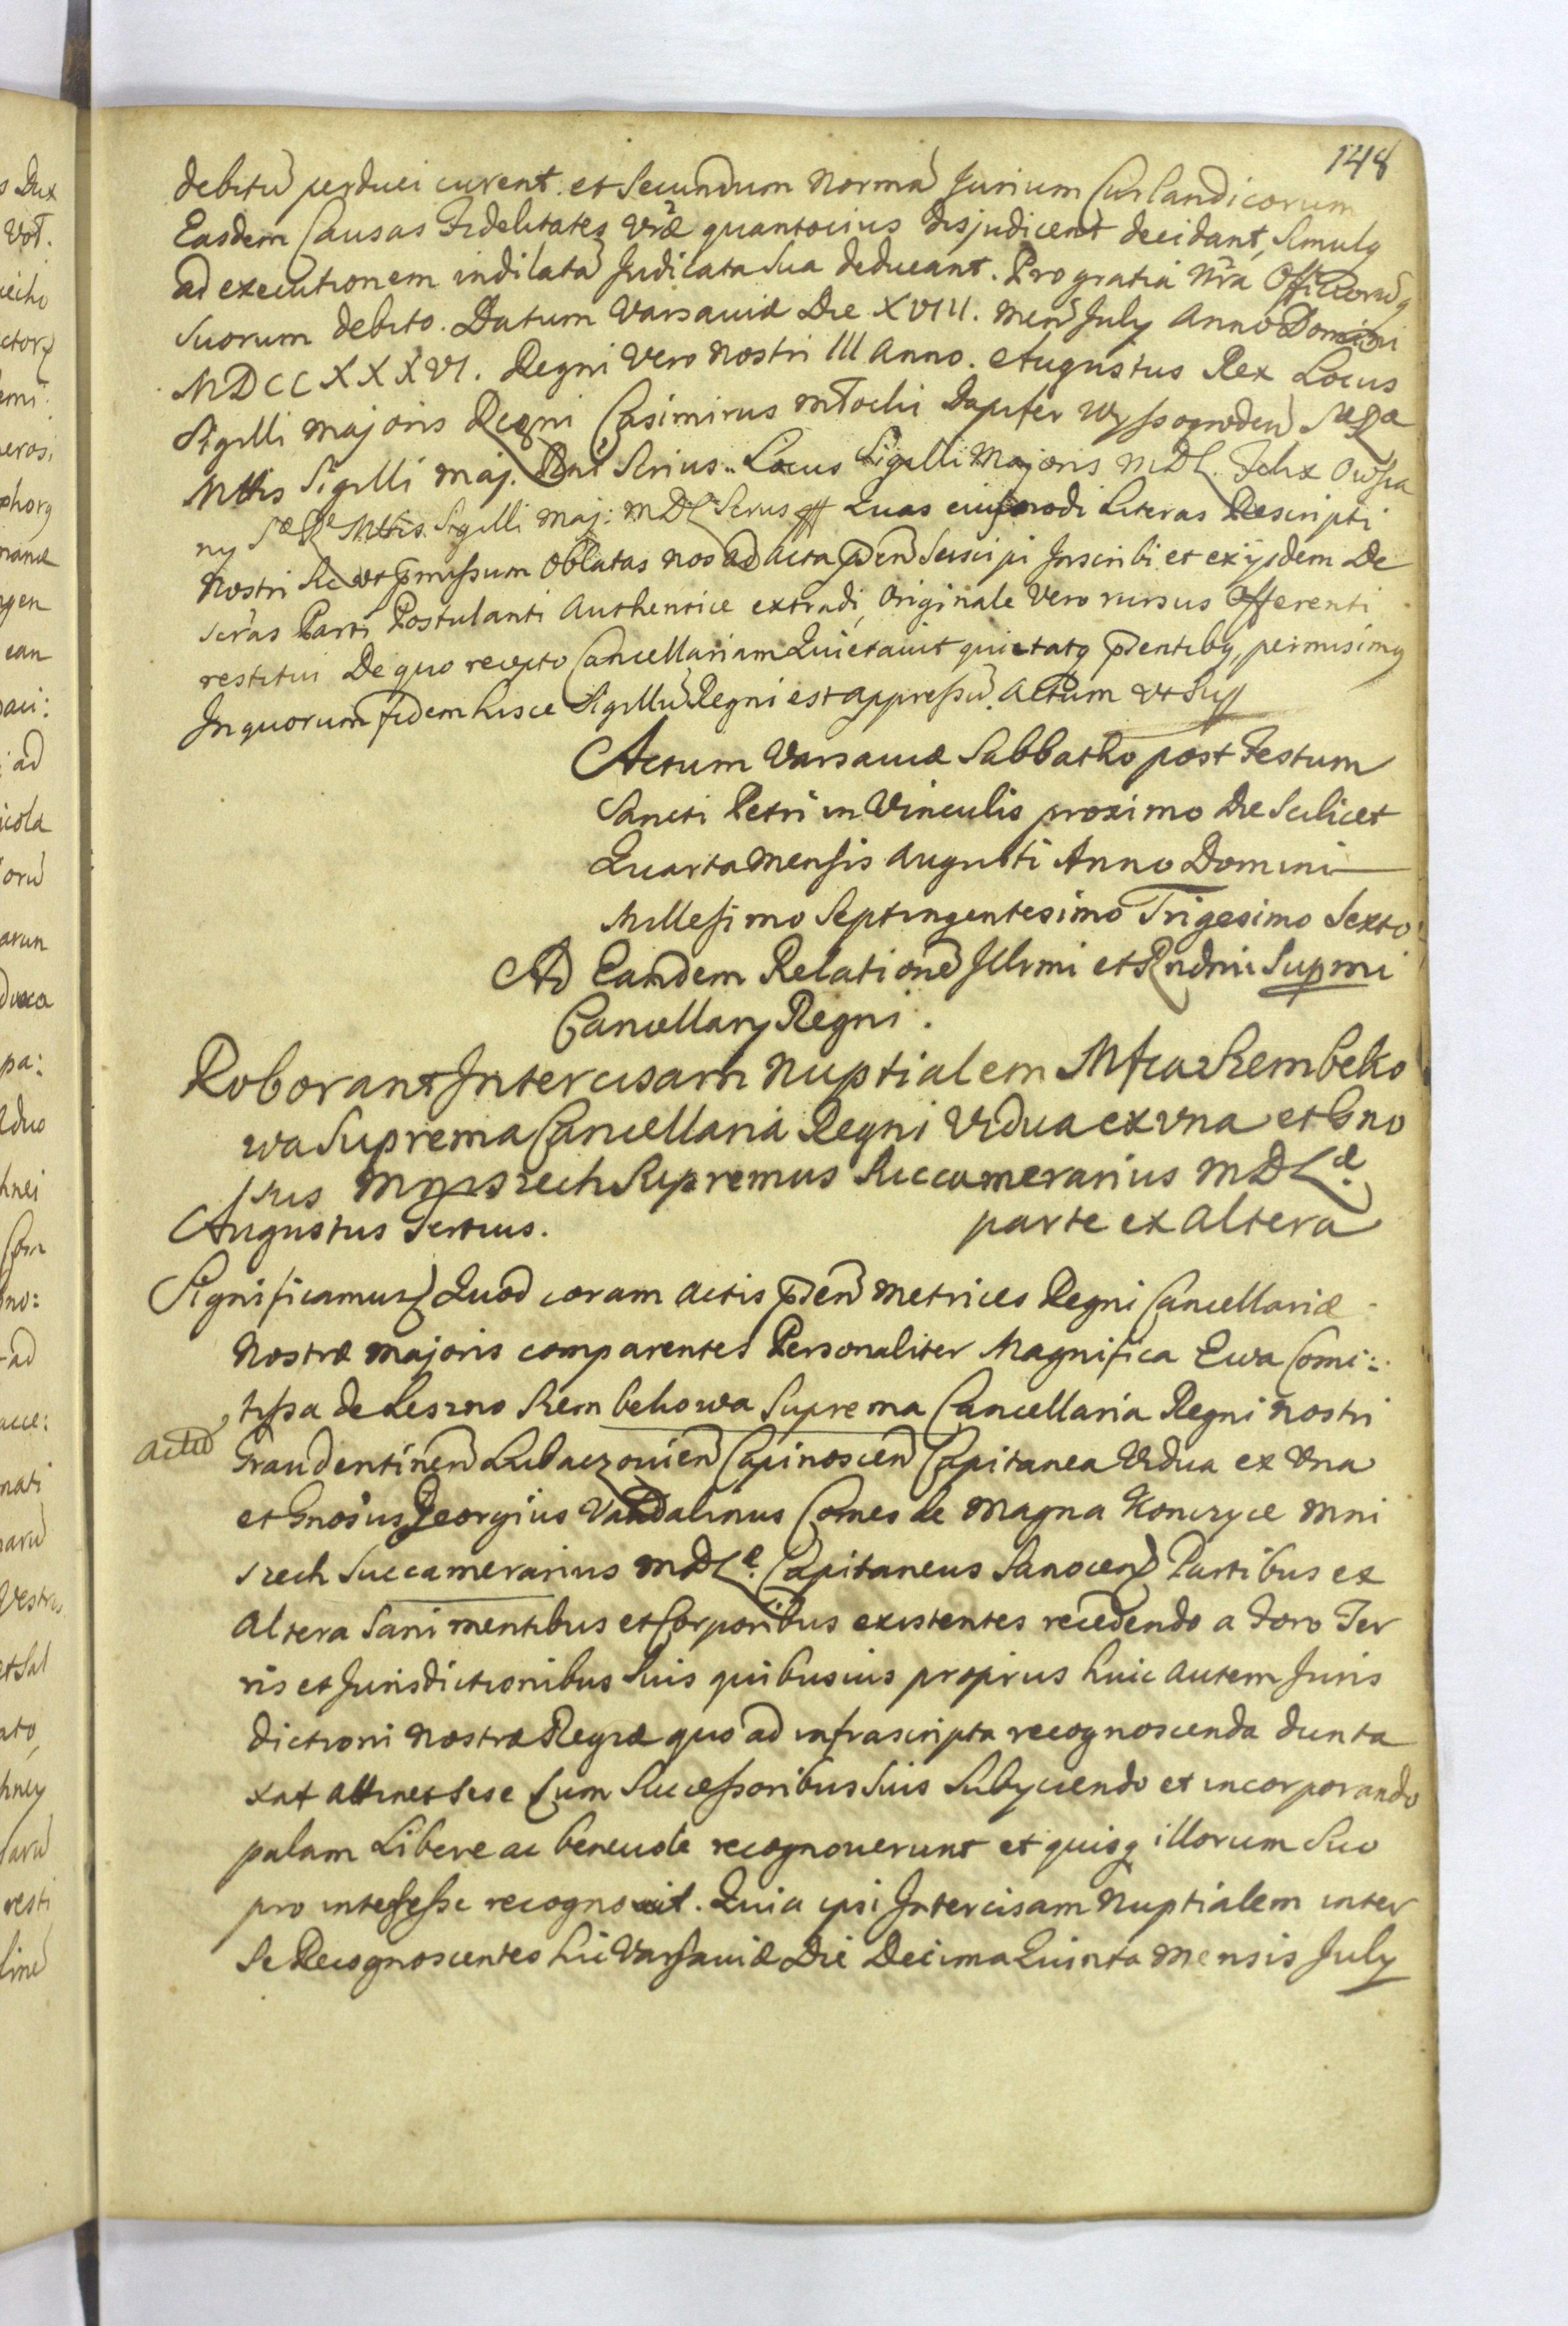 148
debitũ perduci curent et Secundum Normã Jurium Curlandicorum
Easdem Causas Fidelitates Vræ quantocius disjudicent decidant, Simulq
ad executionem indilatã Judicata Sua deducant. Pro gratia Nrã Officiorũq
Suorum debito. Datum Varsaviæ Die XVIII. Men July Anno Domini
MDCCXXXVI. Regni Vero Nostri III Anno. Augustus Rex Locus
Sigilli Majoris Regni Casimirus Młocki Dapifer Wyssogroden SRæ
Mttis Sigilli Maj. Rni Scrius.. Locus Sigilli Majoris MDL. Felix Owsia
ny SRæ Mttis. Sigilli Maj: MDL Scrius Quas eiusmodi Literas Rescripti
Nostri Sic ut p̃missum Oblatas Nos ad Acta p̃sen Suscipi Inscribi et ex ijsdem De
scr̃as Parti Postulanti Authentice extradi, Originale Vero rursus Offerenti
restitui De quo recepto Cancellariam Quietavit quietatq p̃sentibq, permisimq
In quorum fidem hisce Sigillũ Regni est appressũ. Actum Ut Sup
Actum Varsaviæ Sabbatho post Festum
Sancti Petri in Vinculis proximo Die Scilicet
Quarta Mensis Augusti Anno Domini
Millesimo Septingentesimo Trigesimo Sexto
Ad Eandem Relationẽ Illrmi et Rndmi Supmi
Cancellary Regni.
Roborant Intercisam Nuptialem Mfica Szembeko
wa Suprema Cancellaria Regni Vidua ex una et Gno
sus Mniszech Supremus Succamerarius MDLæ
Augustus Tertius. parte ex altera
Significamus Quod coram Actis p̃sen Metrices Regni Cancellariæ
Nostræ Majoris comparentes Personaliter Magnifica Ewa Comi:
tissa de Leszno Szembekowa Suprema Cancellaria Regni Nostri
actũ Graudentinen Lubaczovien Copinoscen Capitanea Vidua ex Una
et Gnosus Georgius Vandalinus Comes de Magna Konczyce Mni
szech Succamerarius MDLæ. Capitaneus Sanocen Partibus ex
Altera Sani mentibus et Corporibus existentes recedendo a Foro Ter
ris et Jurisdictionibus Suis quibusvis proprius huic autem Juris
dictioni Nostræ Regiæ quo ad infrascripta recognoscenda dunta
xat attinet sese Cum Successoribus Suis Subyciendo et incorporando
palam Libere ac benevole recognoverunt et quisq illorum Suo
pro interesse recognovit. Quia ipsi Intercisam Nuptialem inter
Se Recognoscentes hic Varsaviæ Die Decima Quinta Mensis July